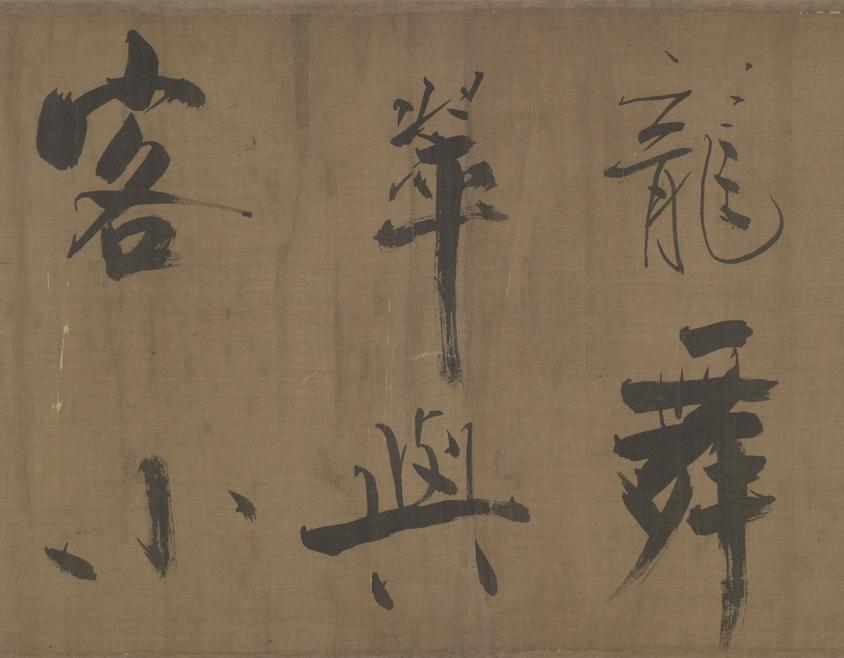 龍舞
華與
客小